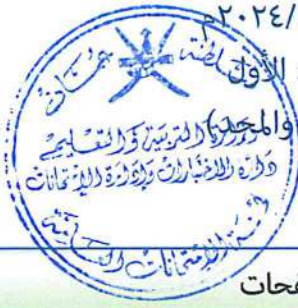 /٢٠٢٤م
الأول
والمجد)
سلطنة عمان
وزارة التربية والتعليم
دائرة الاختبارات وإدارة الامتحانات
فحات